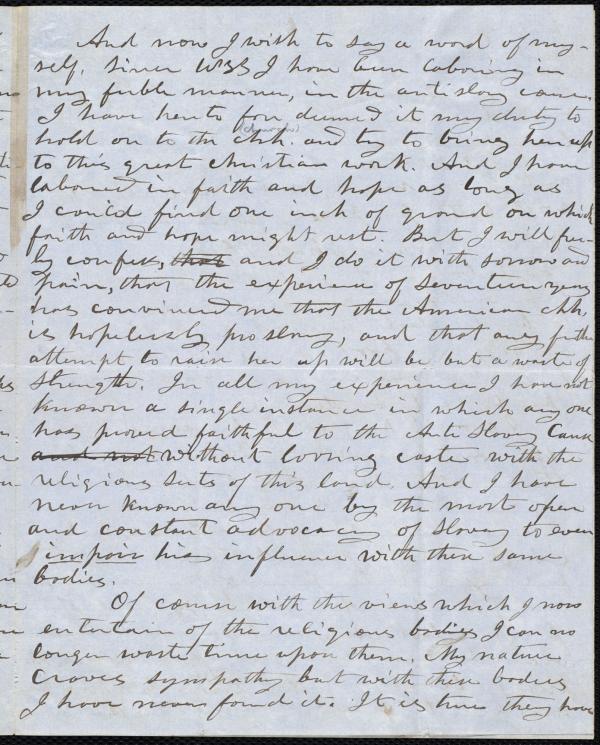 And now I wish to say a word of my-
self. Since 1833 I have been laboring in
my feeble manner, in the anti slavy cause.
I have here to fore deemed it my duty to
(churches)
hold on to the chh. and try to bring her up
to this great christian work. And I have
labored in faith and hope as long as
I could find one inch of ground on which
faith and hope might rest. But I will free-
ly confess, that and I do it with sorrow and
pain, that the experience of seventeen years
has convinced me that the American chh.
is hopelessly proslavy, and that any further
attempt to raise her up will be but a waste of
strength. In all my experience I have not
known a single instance in which any one
has proved faithful to the Anti Slavery Cause
and not without loosing caste with the
religious sects of this land. And I have
never known any one by the most open
and constant advocacy of Slavery to even
impair his influence with these same
bodies.
Of course with the views which I now
entertain of the religious bodies I can no
longer waste time upon them. My nature
craves sympathy but with these bodies
I have never found it. It is true they have